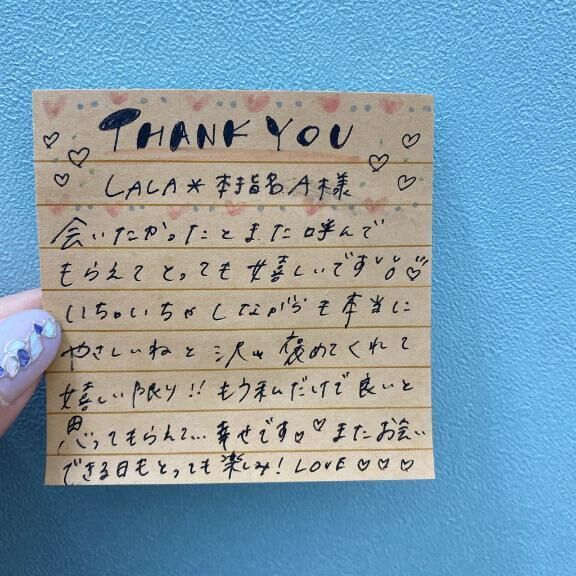 THANK YOU
LALA＊本指名A様
会いたかったとまた呼んで
もらえてとっても嬉しいです
いちゃいちゃしながらも本当に
やさしいねと沢山褒めてくれて
嬉しい限り!!もう私だけで良いと
思ってもらえて…幸せです♡♡またお会い
できる日もとっても楽しみ!LOVE♡♡♡